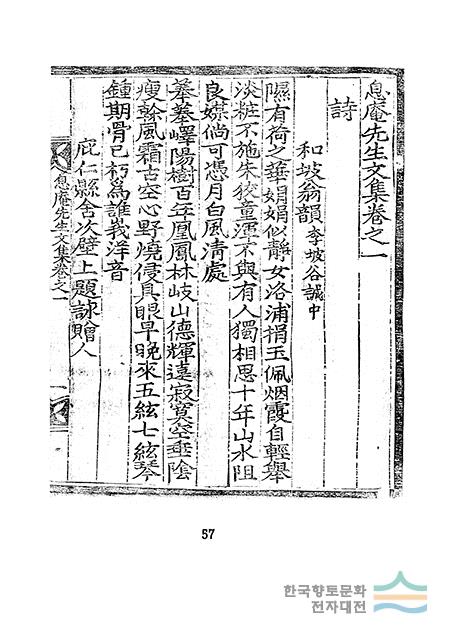 息庵先生文集卷之一
詩
和坡翁韻 李坡谷誠中
隰有荷之華娟娟似靜女洛浦捐玉佩烟霞自輕擧
淡粧不施朱狡童渾不與有人獨相思十年山水阻
良媒倘可憑月白風清處
菶菶嶧陽樹百年凰鳳林岐山德輝遠寂寞空垂陰
瘦榦風霜古空心野燒侵具眼早晚來五絃七絃琴
鍾期骨已朽爲誰莪洋音
庇仁縣舍次壁上題詠贈人
息庵先生文集卷之一
57
한국향토문화
전자대전